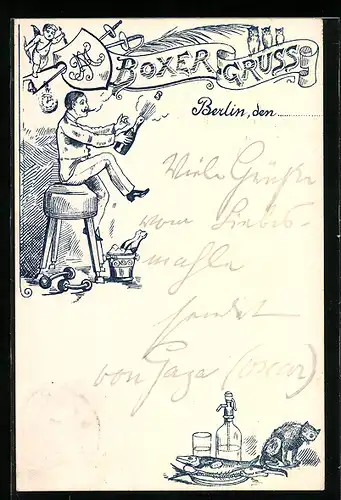 BOXER GRUSS
Berlin, den
Viele Grüße
vom Liebes-
mahle
sendet
von
(Oscar)